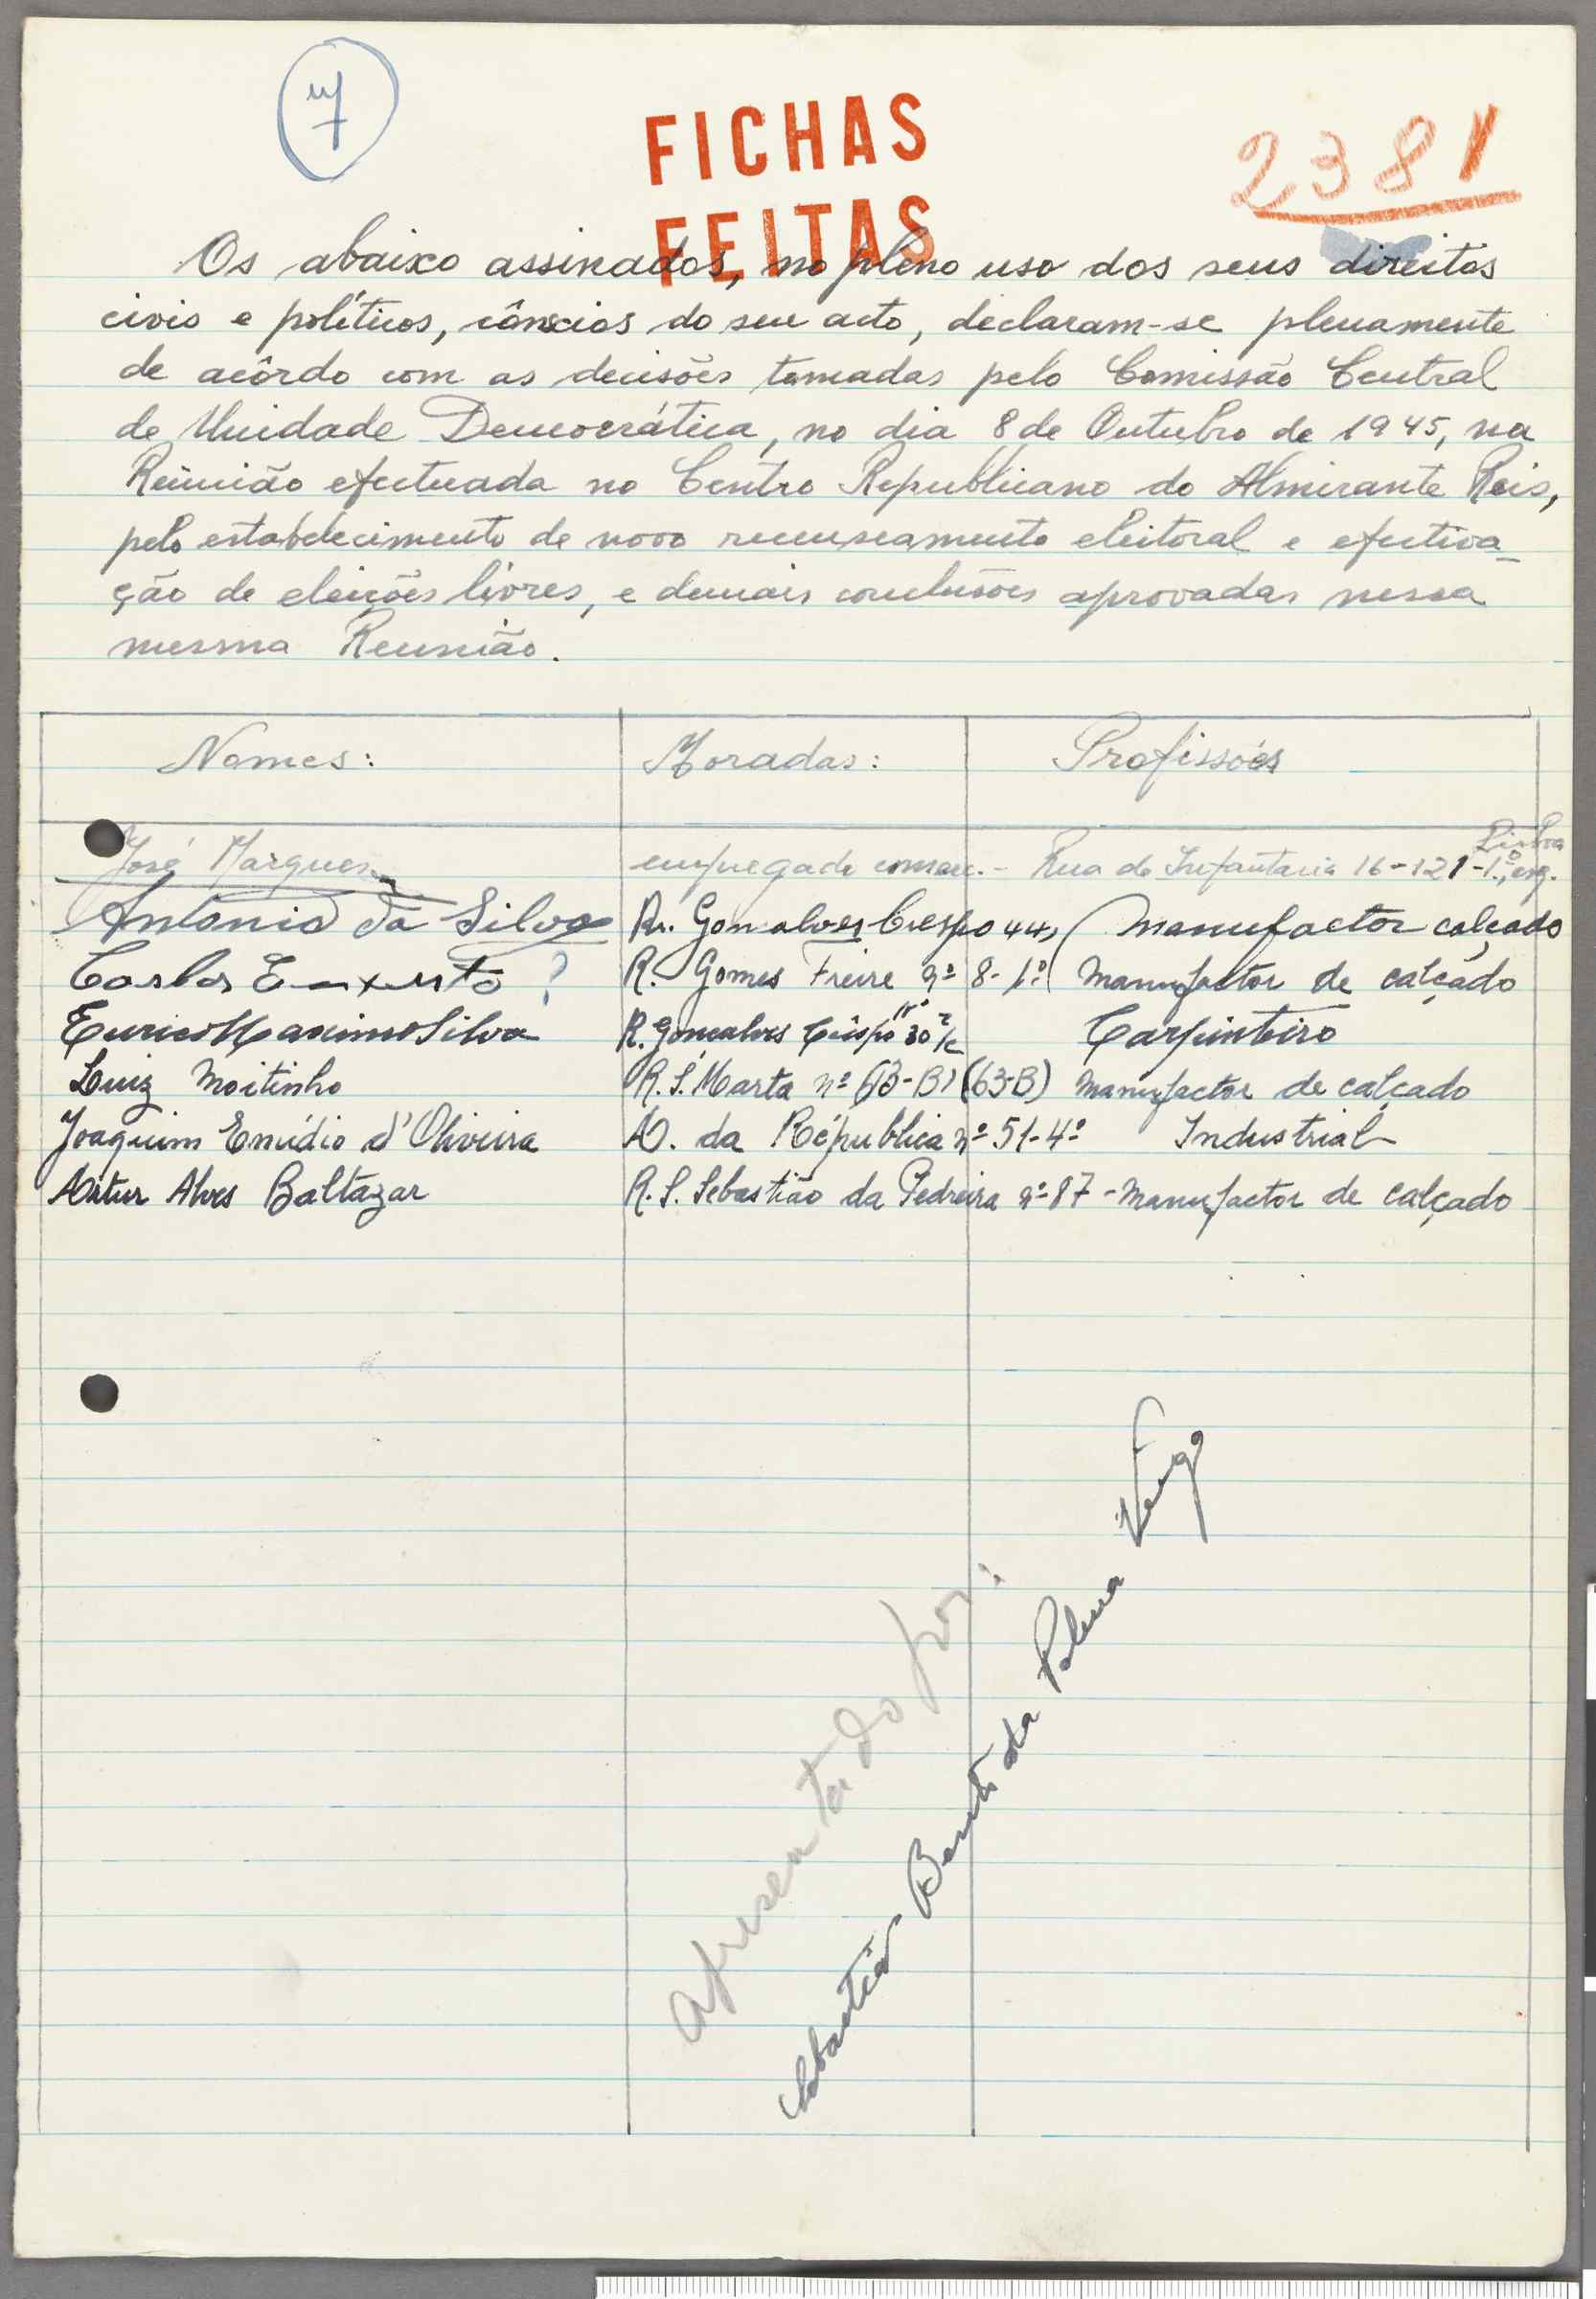 7
FICHAS
FEITAS
2381
Os abaixo assinados, no pleno uso dos seus direitos
civis e políticos, cônscios do seu acto, declaram-se plenamente
de acôrdo com as decisões tomadas pelo Comissão Central
de Unidade Democrática, no dia 8 de Outubro de 1945, na
Reünião efectuada no Centro Republicano do Almirante Reis,
pelo estabelecimento de novo recenseamento eleitoral e efectiva-
ção de eleições livres, e demais conclusões aprovadas nessa
mesma Reunião.
Nomes: Moradas: Profissões
Lisboa
José Marques empregado comerc. - Rua de Infantaria 16-121-1.º, esq.
Antonio da Silva R. Goncalves Crespo 44, Manufactor calçado
Carlos ? R. Gomes Freire nº 8-1º Manufactor de calçado
Eurico Maximo Silva R. Gonçalves Crespo 30 r/c Carpinteiro
Luiz Moitinho R. S. Marta nº (63-B) Manufactor de calçado
Joaquim Emídio d'Oliveira A. da Républica nº 51-4º Industrial
Artur Alves Baltazar R. S. Sebastião da Pedreira nº 87 - Manufactor de calçado
Apresentado por:
Sebastião da Palma